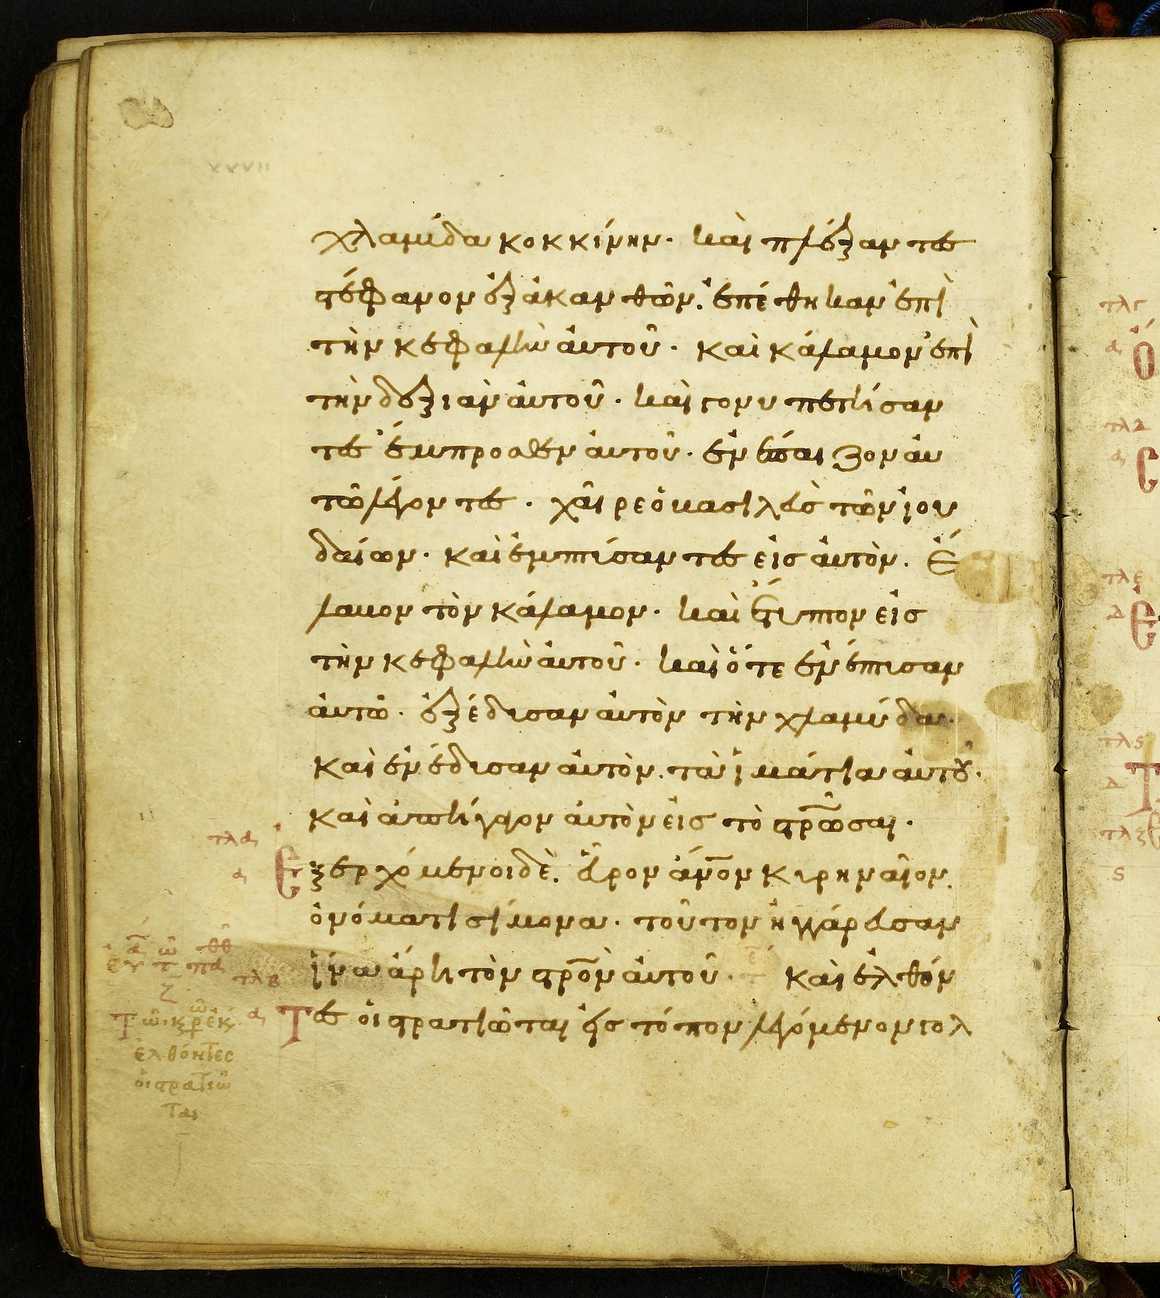 χλαμύδα κοκκίνην· καὶ πλέξαντες
στέφανον ἐξ ἀκανθῶν· ἐπέθηκαν ἐπὶ
τὴν κεφαλὴν ἀυτοῦ· καὶ κάλαμον ἐπὶ
τὴν δεξιὰν ἀυτοῦ· καὶ γονυπετήσαν
τες ἔμπροσθεν ἀυτοῦ· ἐνέπαιζον ἀυ
τῶ λέγοντες· χαῖρε ὁ βασιλεὺς τῶν ἰου
δαίων· καὶ ἐμπτύσαντες εἰς ἀυτὸν· ἔ
λαβον τὸν κάλαμον· καὶ ἔτυπτον εἰς
τὴν κεφαλὴν ἀυτοῦ· καὶ ὅτε ἐνέπαιξαν
ἀυτῶ· ἐξέδυσαν ἀυτὸν τὴν χλαμύδα·
καὶ ἐνέδυσαν ἀυτὸν· τὰ ἱμάτια ἀυτοῦ·
καὶ ἀπήγαγον ἀυτὸν εἰς τὸ στρῶσαι·
τλα
α Ἐξερχόμενοι δὲ· εὗρον ἀνον κυρηναῖον·
ὀνόματι σίμωνα· τοῦτον ἠγγάρευσαν
ἵνα ἄρη τὸν στρον ἀυτοῦ· καὶ ἐλθόν
τλβ
α Τες ὁι στρατιῶται εἰς τόπον λεγόμενον γολ
τῶ ικρ εκ
ἐλθόντες
ὁι στρατιῶ
ται